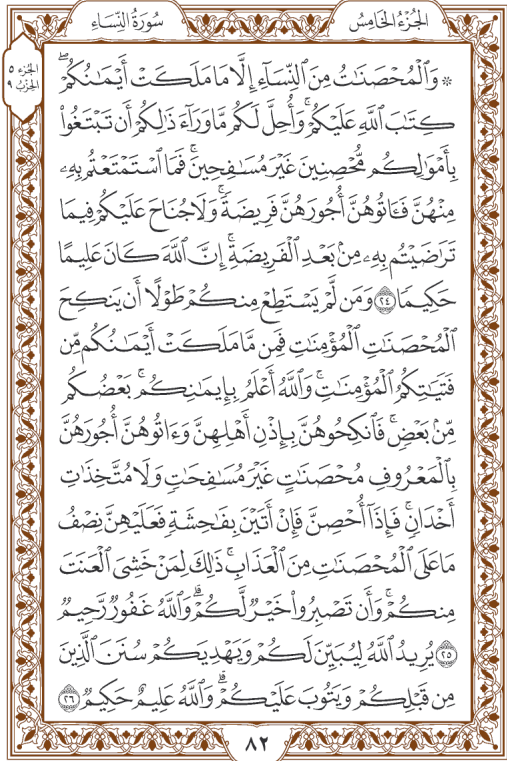 الجُزْءُ الخَامِسُ
سُورَةُ النِّسَاءِ
الجزء ٥
الحزب ٩
۞ وَٱلْمُحْصَنَٰتُ مِنَ ٱلنِّسَآءِ إِلَّا مَا مَلَكَتْ أَيْمَٰنُكُمْۖ
كِتَٰبَ ٱللَّهِ عَلَيْكُمْۚ وَأُحِلَّ لَكُم مَّا وَرَآءَ ذَٰلِكُمْ أَن تَبْتَغُوا۟
بِأَمْوَٰلِكُم مُّحْصِنِينَ غَيْرَ مُسَٰفِحِينَۚ فَمَا ٱسْتَمْتَعْتُم بِهِۦ
مِنْهُنَّ فَـَٔاتُوهُنَّ أُجُورَهُنَّ فَرِيضَةًۚ وَلَا جُنَاحَ عَلَيْكُمْ فِيمَا
تَرَٰضَيْتُم بِهِۦ مِنۢ بَعْدِ ٱلْفَرِيضَةِۚ إِنَّ ٱللَّهَ كَانَ عَلِيمًا
حَكِيمًا ٢٤ وَمَن لَّمْ يَسْتَطِعْ مِنكُمْ طَوْلًا أَن يَنكِحَ
ٱلْمُحْصَنَٰتِ ٱلْمُؤْمِنَٰتِ فَمِن مَّا مَلَكَتْ أَيْمَٰنُكُم مِّن
فَتَيَٰتِكُمُ ٱلْمُؤْمِنَٰتِۚ وَٱللَّهُ أَعْلَمُ بِإِيمَٰنِكُمۚ بَعْضُكُم
مِّنۢ بَعْضٍۚ فَٱنكِحُوهُنَّ بِإِذْنِ أَهْلِهِنَّ وَءَاتُوهُنَّ أُجُورَهُنَّ
بِٱلْمَعْرُوفِ مُحْصَنَٰتٍ غَيْرَ مُسَٰفِحَٰتٍ وَلَا مُتَّخِذَٰتِ
أَخْدَانٍۚ فَإِذَآ أُحْصِنَّ فَإِنْ أَتَيْنَ بِفَٰحِشَةٍ فَعَلَيْهِنَّ نِصْفُ
مَا عَلَى ٱلْمُحْصَنَٰتِ مِنَ ٱلْعَذَابِۚ ذَٰلِكَ لِمَنْ خَشِىَ ٱلْعَنَتَ
مِنكُمْۚ وَأَن تَصْبِرُوا۟ خَيْرٌ لَّكُمْۗ وَٱللَّهُ غَفُورٌ رَّحِيمٌ
٢٥ يُرِيدُ ٱللَّهُ لِيُبَيِّنَ لَكُمْ وَيَهْدِيَكُمْ سُنَنَ ٱلَّذِينَ
مِن قَبْلِكُمْ وَيَتُوبَ عَلَيْكُمْۗ وَٱللَّهُ عَلِيمٌ حَكِيمٌ ٢٦
٨٢